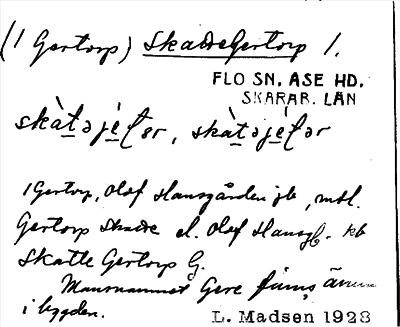 (1 Gertorp) SkatteGertorp 1.
FLO SN. ÅSE HD.
SKARAB. LÄN
1 Gertorp, Olof Hansgården jb, mtl.
Gertorp Skatte el. Olof Hansg. kb
Skatte Gertorp G.
Mansnamnet Gere finns även
i bygden.
L. Madsen 1928